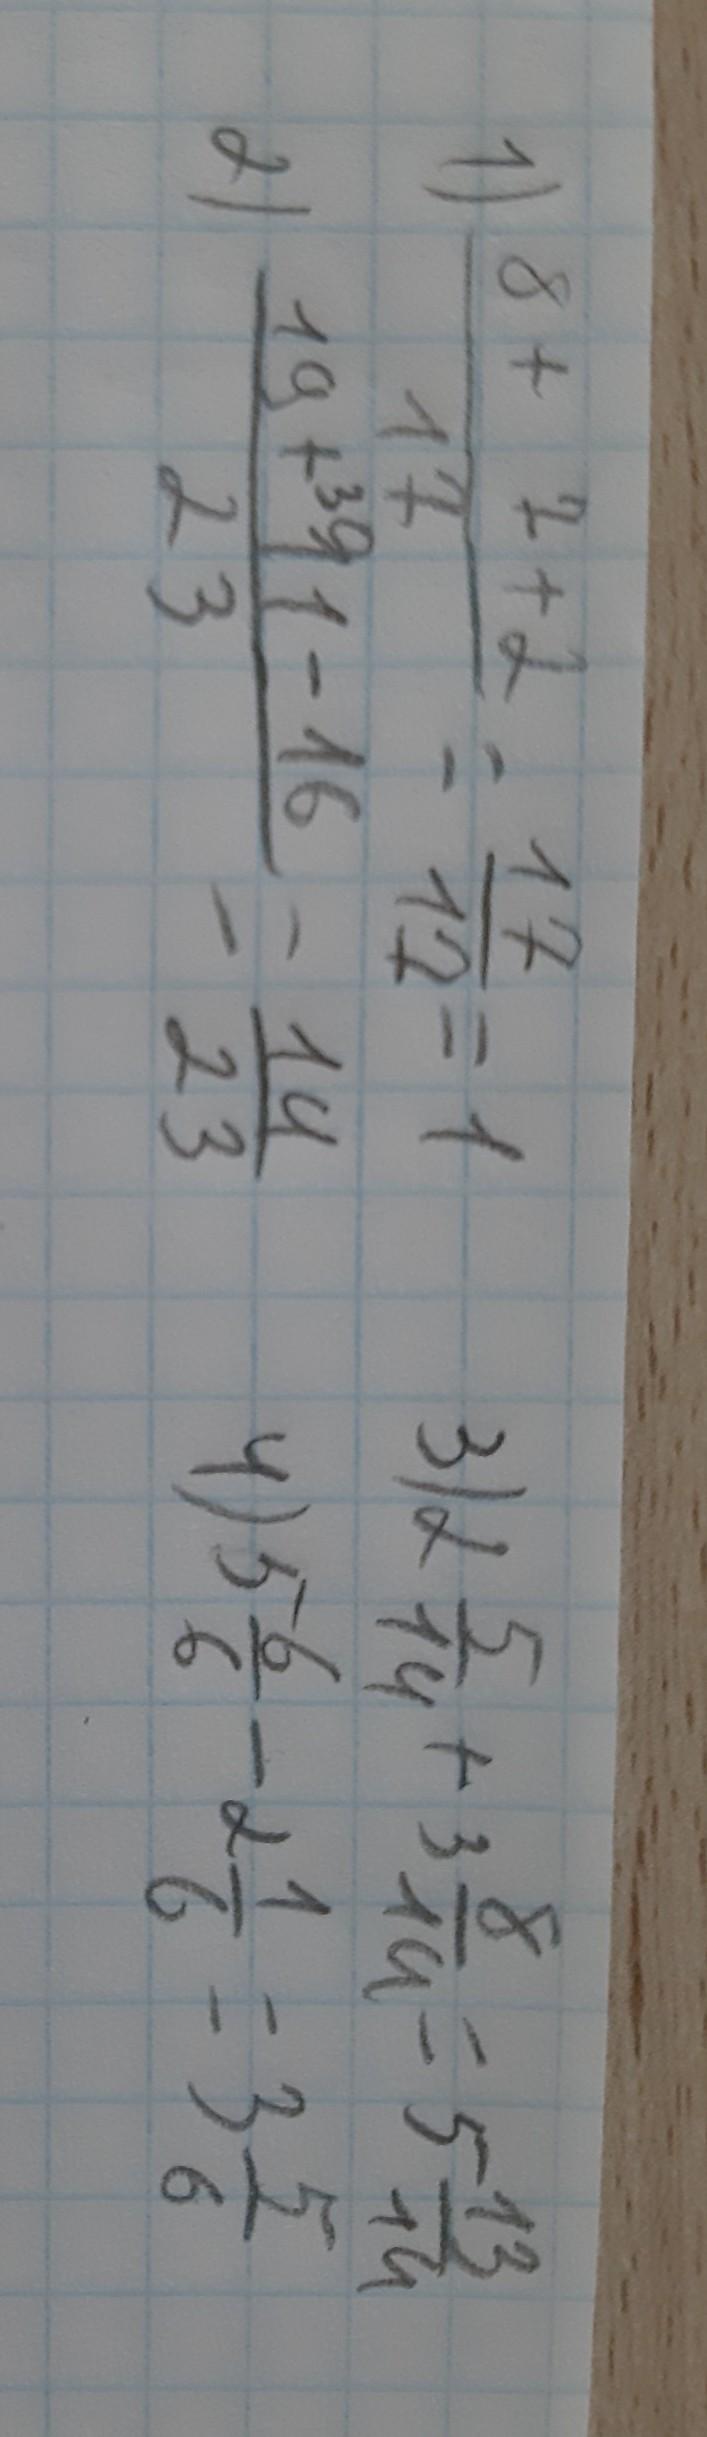 1) (8 + 7 + 2)/17 = 17/17 = 1
2) (19 + 11 - 16)/23 = 14/23
3) 2 5/14 + 3 8/14 = 5 13/14
4) 5 6/6 - 2 1/6 = 3 5/6